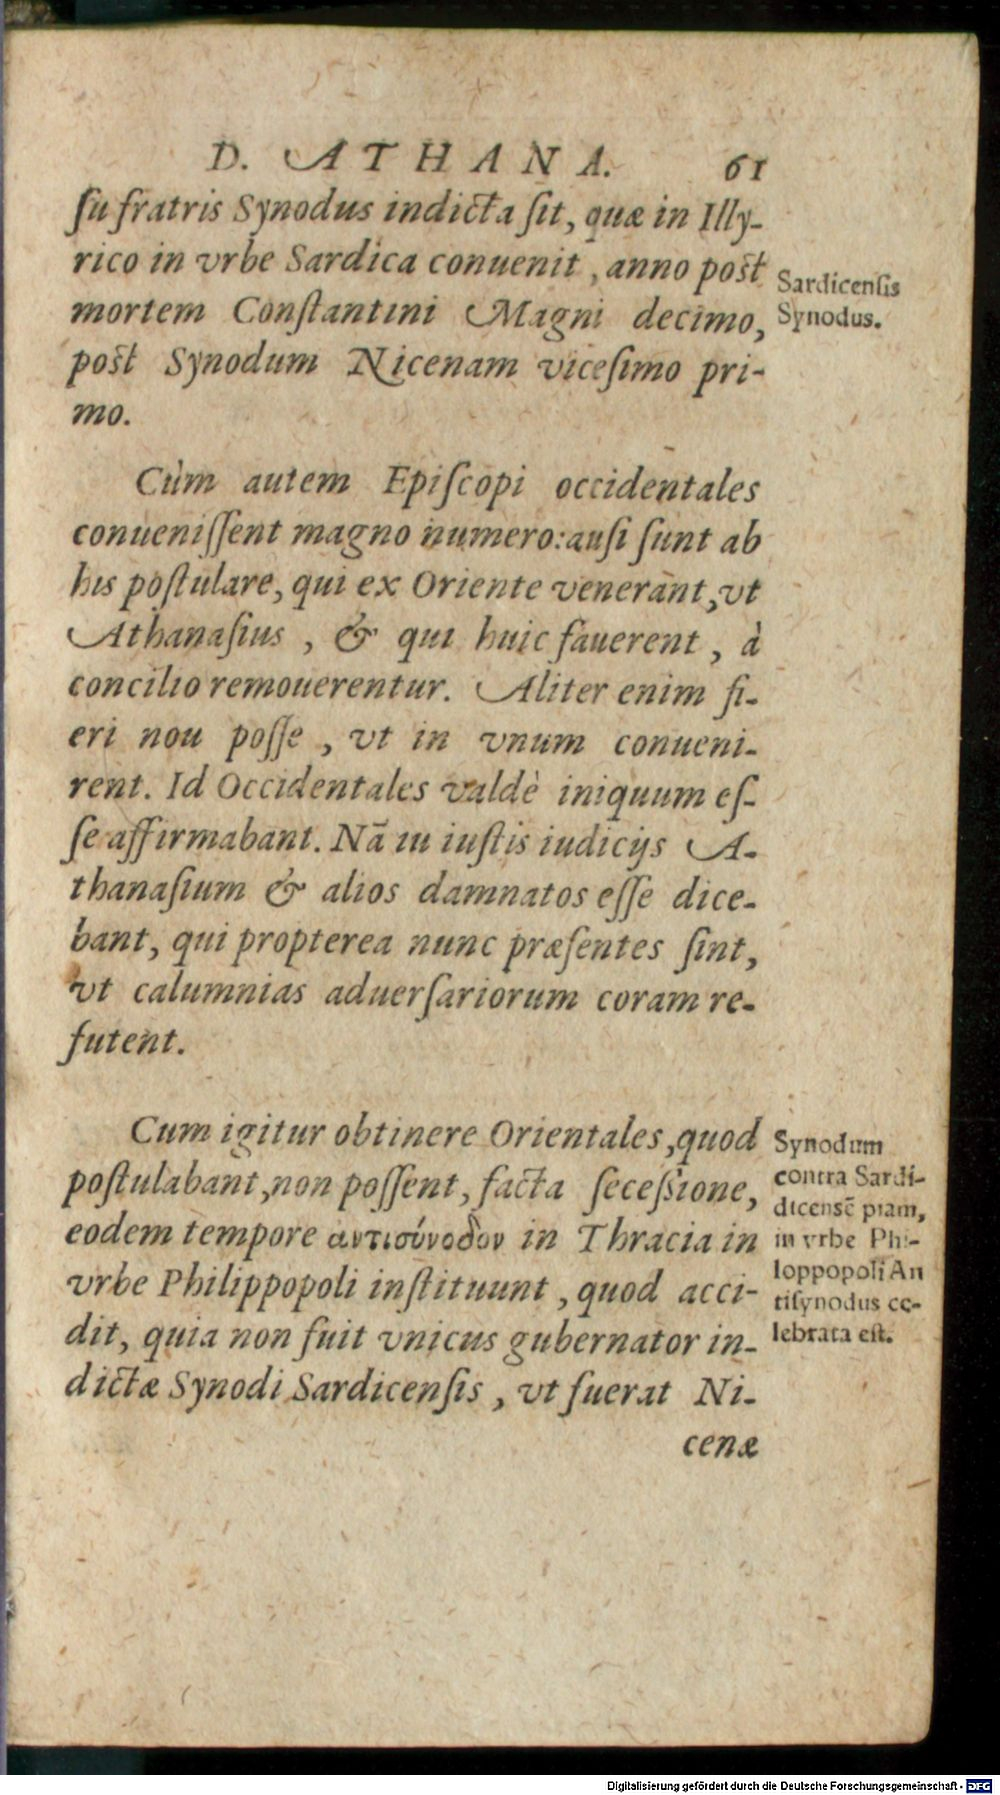 D. ATHANA. 61
ſu fratris Synodus indicta ſit, quæ in Illy-
rico in vrbe Sardica conuenit, anno post
mortem Conſtantini Magni decimo,
post Synodum Nicenam viceſimo pri-
mo.
Sardicenſis
Synodus.
Cùm autem Epiſcopi occidentales
conueniſſent magno numero: auſi ſunt ab
his poſtulare, qui ex Oriente venerant, vt
Athanaſius, & qui huic fauerent, à
concilio remouerentur. Aliter enim fi-
eri nou poſſe, vt in vnum conueni-
rent. Id Occidentales valdè iniquum eſ-
ſe affirmabant. Nā iu iuſtis iudicijs A-
thanaſium & alios damnatos eſſe dice-
bant, qui propterea nunc præſentes ſint,
vt calumnias aduerſariorum coram re-
futent.
Cum igitur obtinere Orientales, quod
poſtulabant, non poſſent, facta ſeceſsione,
eodem tempore αντισύνοδον in Thracia in
vrbe Philippopoli inſtituunt, quod acci-
dit, quia non fuit vnicus gubernator in-
dictæ Synodi Sardicenſis, vt fuerat Ni-
cenæ
Synodum
contra Sardi-
dicensē piam,
in vrbe Phi-
loppopoli An
tiſynodus ce-
lebrata eſt.
Digitalisierung gefördert durch die Deutsche Forschungsgemeinschaft - DFG